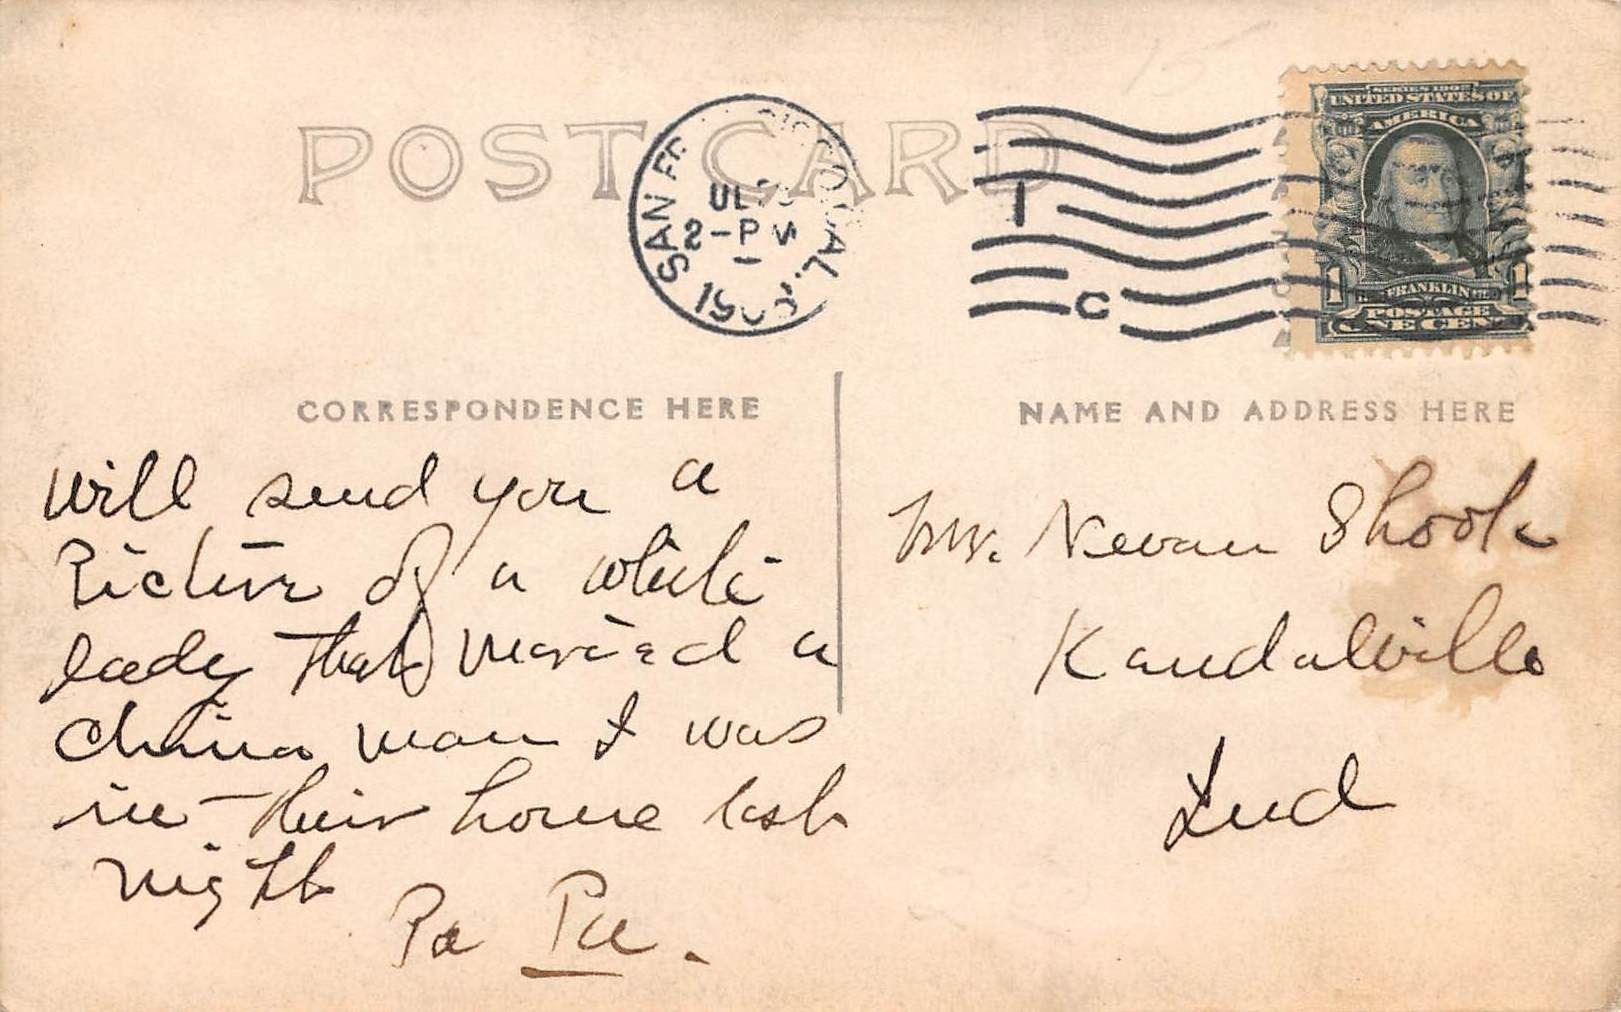 POST CARD
SAN FR CISCO, CAL.
UL
2-PM
190
1
C
SERIES 1902
UNITED STATES OF
AMERICA
1 FRANKLIN 1
POSTAGE
ONE CENT
CORRESPONDENCE HERE
NAME AND ADDRESS HERE
Will send you a
Picture of a white
lady that Maried a
China man I was
in their home last
night
Pa Pa.
Mr. Nevan Shook
Kendalville
Ind